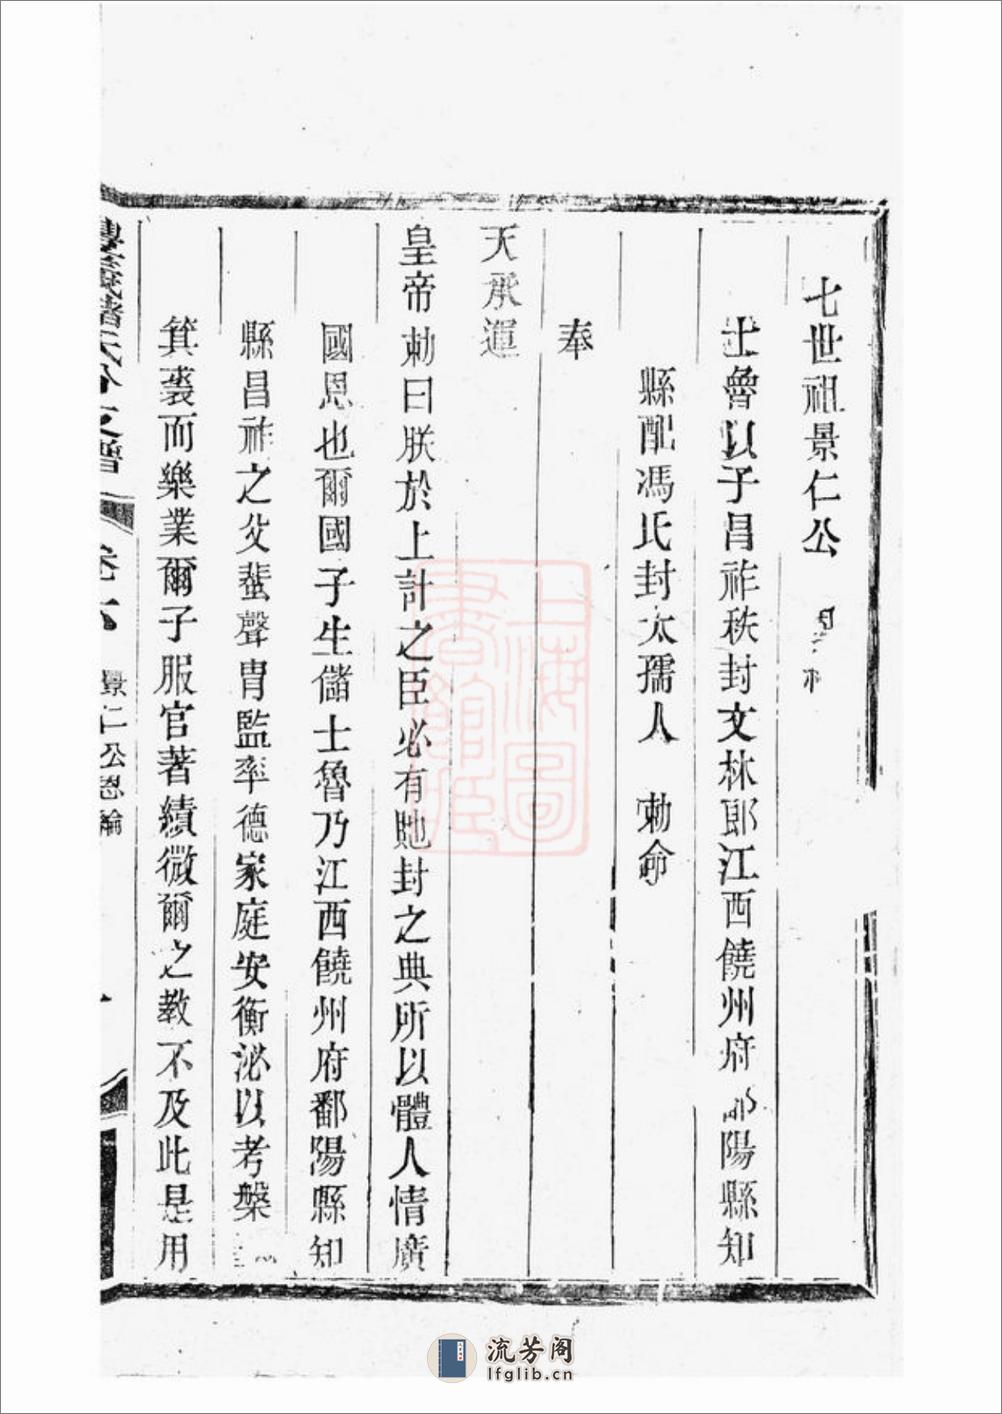 七世祖景仁公
士魯以子昌祚秩封文林郎江西饒州府陽縣知
縣配馮氏封太孺人 勅命
奉
天承運
皇帝勅曰朕於上計之臣必有貤封之典所以體人情廣
國恩也爾國子生儲士魯乃江西饒州府鄱陽縣知
縣昌祚之父蜚聲胄監率德家庭安衡泌以考槃
箕裘而樂業爾子服官著績微爾之教不及此是用
儲氏分支譜 卷六 景仁公恩綸
上海圖書館藏
流芳阁
lfglib.cn